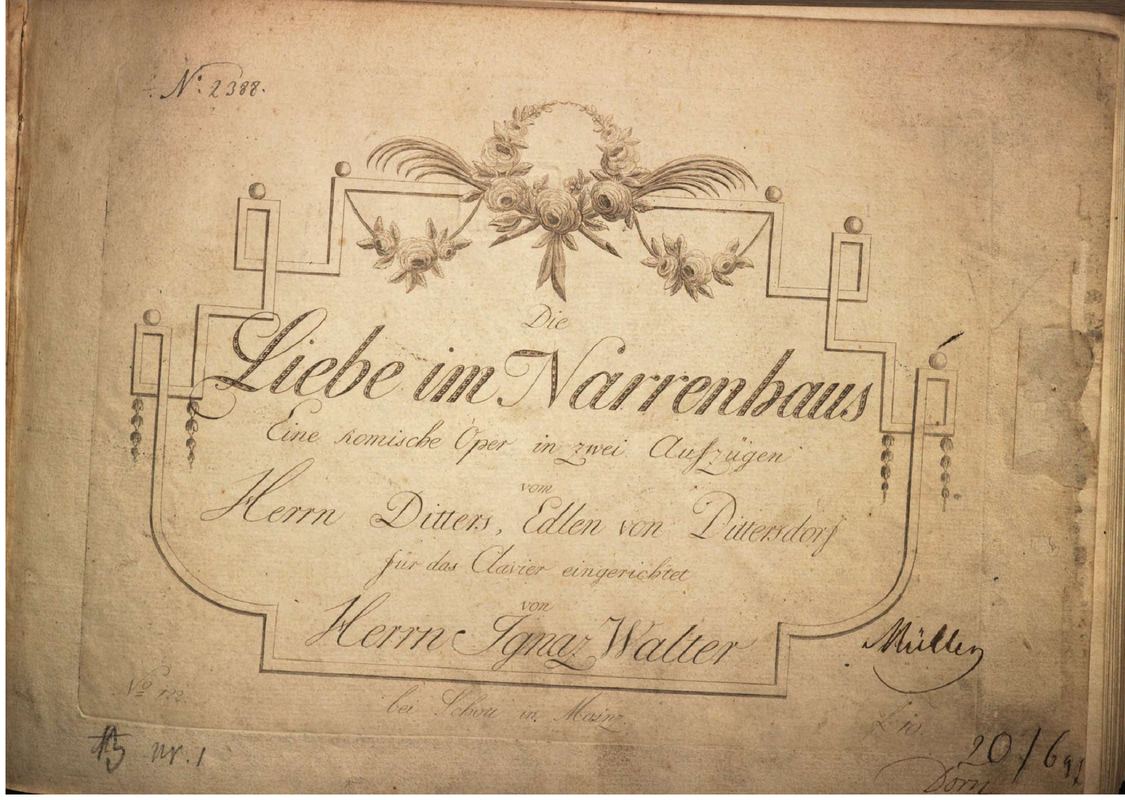 N: 2388.
Die
Liebe im Narrenhaus
Eine komische Oper in zwei Aufzügen
vom
Herrn Ditters, Edlen von Dittersdorf
für das Clavier eingerichtet
von
Herrn Ignaz Walter
Müller
bei Schott in Mainz
nr. 1
20/6
Dorn